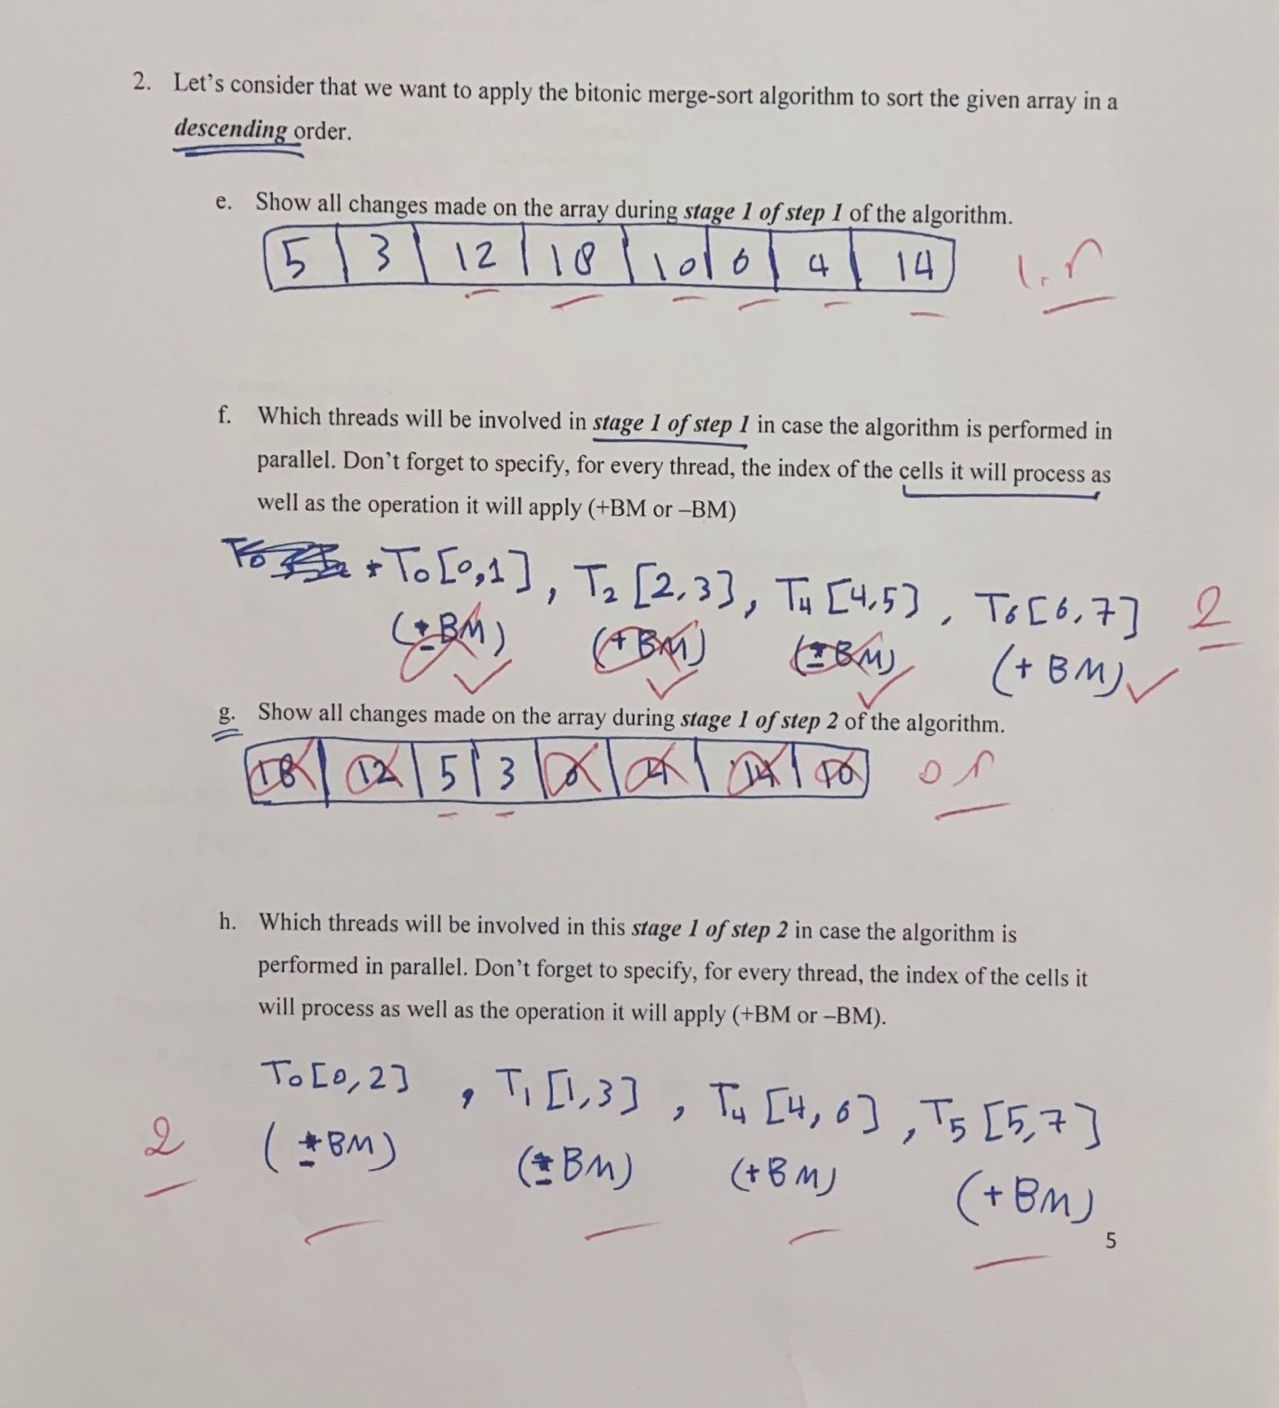 2. Let's consider that we want to apply the bitonic merge-sort algorithm to sort the given array in a
descending order.
e. Show all changes made on the array during stage 1 of step 1 of the algorithm.
5 3 12 18 10 6 4 14
f. Which threads will be involved in stage 1 of step 1 in case the algorithm is performed in
parallel. Don't forget to specify, for every thread, the index of the cells it will process as
well as the operation it will apply (+BM or –BM)
T0 [0,1] , T2 [2,3] , T4 [4,5] , T6 [6,7] 2
(±BM) (+BM) (±BM) (+BM)
g. Show all changes made on the array during stage 1 of step 2 of the algorithm.
18 12 5 3 6 4 14 10
h. Which threads will be involved in this stage 1 of step 2 in case the algorithm is
performed in parallel. Don't forget to specify, for every thread, the index of the cells it
will process as well as the operation it will apply (+BM or –BM).
T0 [0,2] , T1 [1,3] , T4 [4,6] , T5 [5,7]
2 (±BM) (±BM) (+BM) (+BM)
5